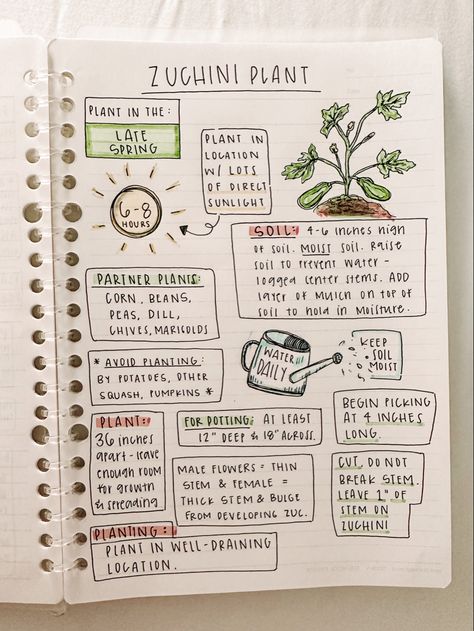 ZUCHINI PLANT
PLANT IN THE:
LATE
SPRING
PLANT IN
LOCATION
W/ LOTS
OF DIRECT
SUNLIGHT
6-8
HOURS
SOIL: 4-6 INCHES HIGH
OF SOIL. MOIST SOIL. RAISE
SOIL TO PREVENT WATER-
LOGGED CENTER STEMS. ADD
LAYER OF MULCH ON TOP OF
SOIL TO HOLD IN MOISTURE.
PARTNER PLANTS:
CORN, BEANS,
PEAS, DILL,
CHIVES, MARIGOLDS
WATER
DAILY
KEEP
SOIL
MOIST
* AVOID PLANTING:
BY POTATOES, OTHER
SQUASH, PUMPKINS *
PLANT:
36 INCHES
APART - LEAVE
ENOUGH ROOM
FOR GROWTH
& SPREADING
FOR POTTING: AT LEAST
12" DEEP & 18" ACROSS.
BEGIN PICKING
AT 4 INCHES
LONG.
MALE FLOWERS = THIN
STEM & FEMALE =
THICK STEM & BULGE
FROM DEVELOPING ZUC.
CUT, DO NOT
BREAK STEM.
LEAVE 1" OF
STEM ON
ZUCHINI
PLANTING:
PLANT IN WELL-DRAINING
LOCATION.